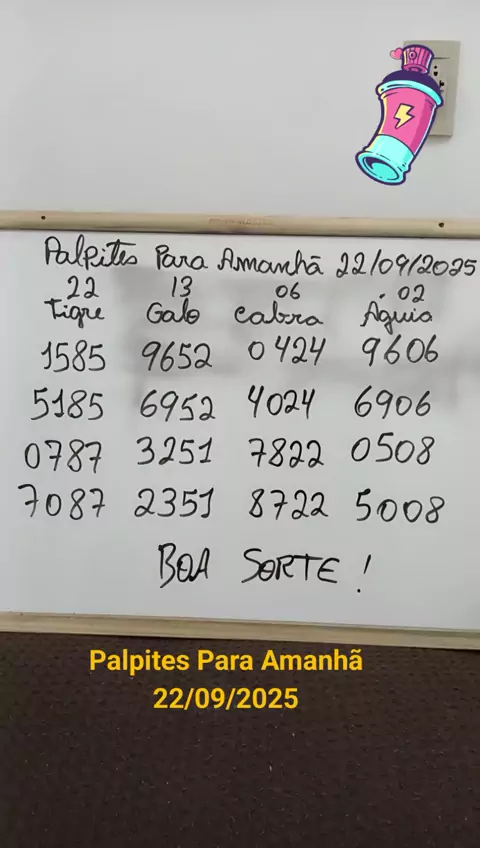 Palpites Para Amanhã 22/09/2025
22 13 06 02
Tigre Galo Cabra Águia
1585 9652 0424 9606
5185 6952 4024 6906
0787 3251 7822 0508
7087 2351 8722 5008
BOA SORTE!
Palpites Para Amanhã
22/09/2025